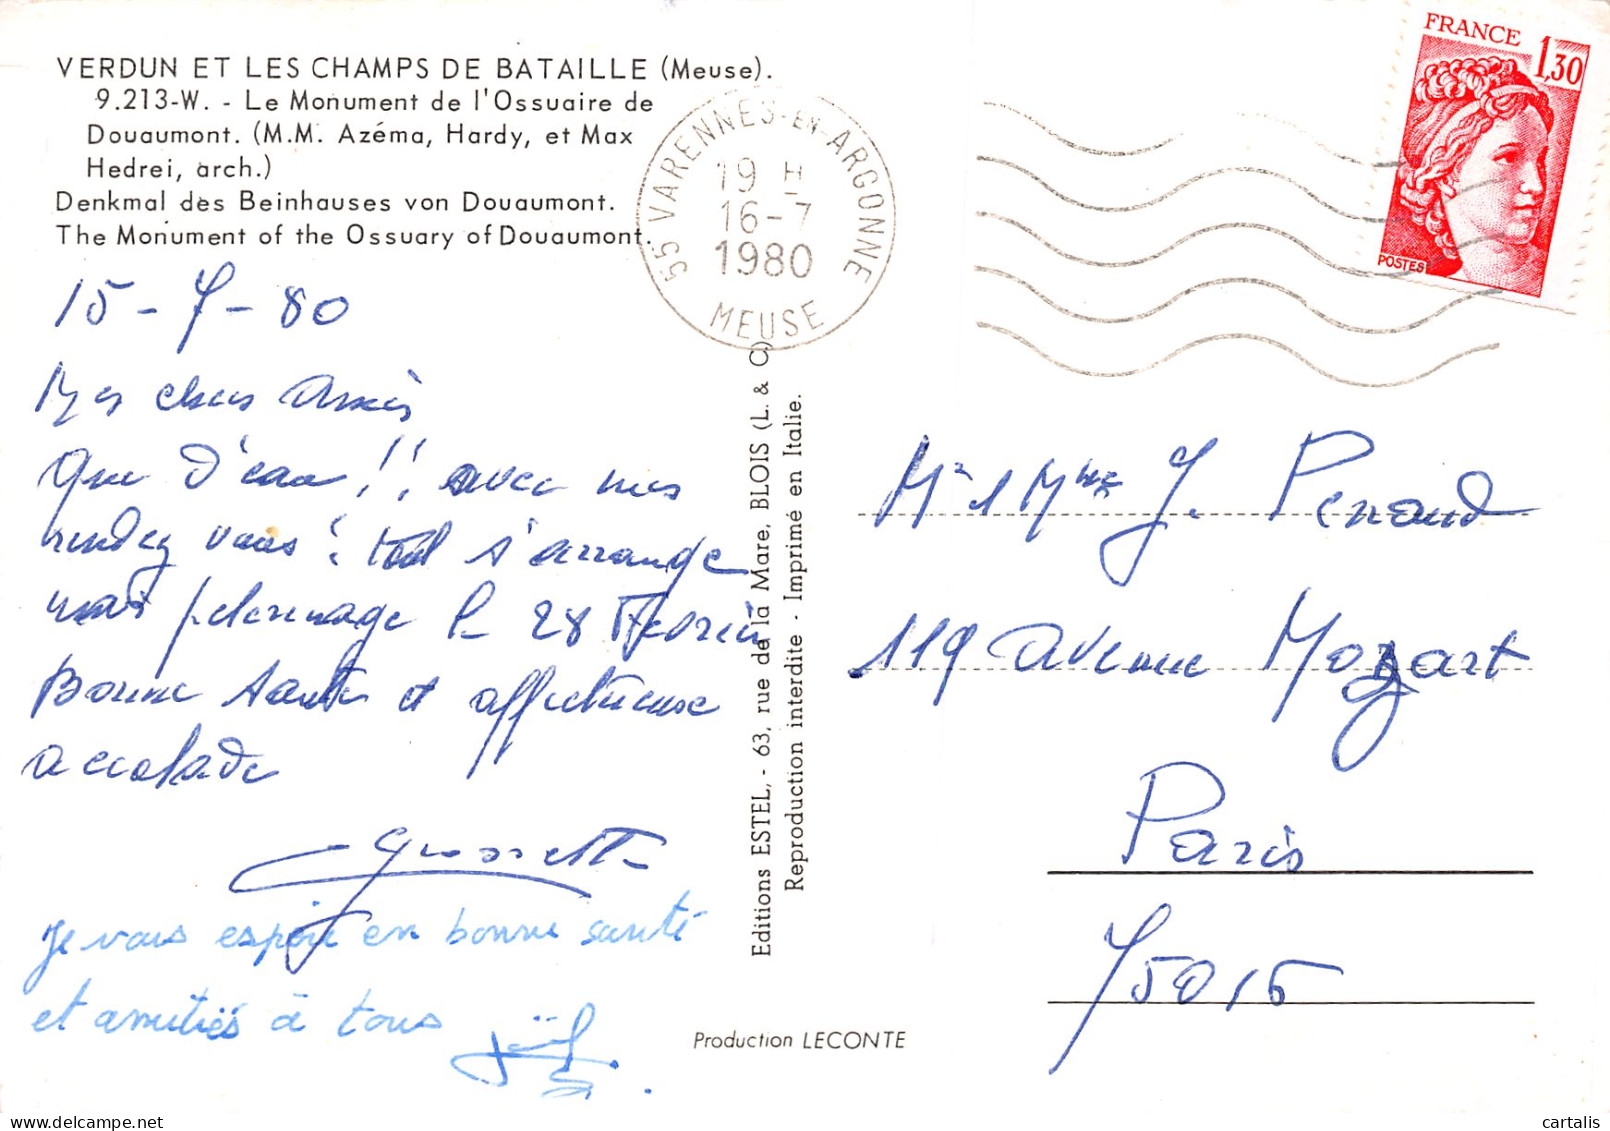 VERDUN ET LES CHAMPS DE BATAILLE (Meuse).
9.213-W. - Le Monument de l'Ossuaire de
Douaumont. (M.M. Azéma, Hardy, et Max
Hedrei, arch.)
Denkmal des Beinhauses von Douaumont.
The Monument of the Ossuary of Douaumont.
55 VARENNES-EN-ARGONNE
19 H
16-7
1980
MEUSE
FRANCE
1,30
POSTES
15-7-80
Mes chers Amis
Que d'eau!! avec mes
rendez vous: tout s'arrange
mais pelerinage 28
Bonne Sante et affectueuse
accolade
Je vous espère en bonne santé
et amitiés à tous
Editions ESTEL, - 63, rue de la Mare, BLOIS (L. & C)
Reproduction interdite - Imprimé en Italie.
Production LECONTE
Mr & Mme J. Penaud
119 Avenue Mozart
Paris
75016